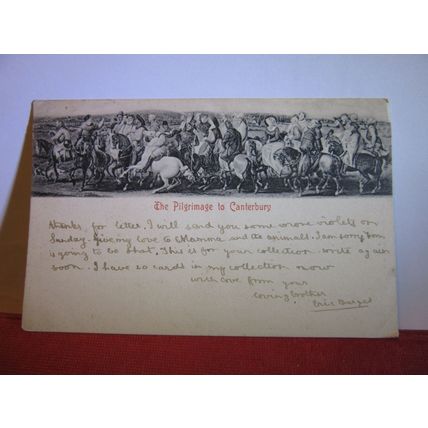 The Pilgrimage to Canterbury
thanks, for letter. I will send you some more violets on
Sunday. Give my love to Mamma and the animals. I am sorry Tom
is going to be shot. This is for your collection. write again
soon. I have 20 cards in my collection now
with love from your
loving brother
Eric